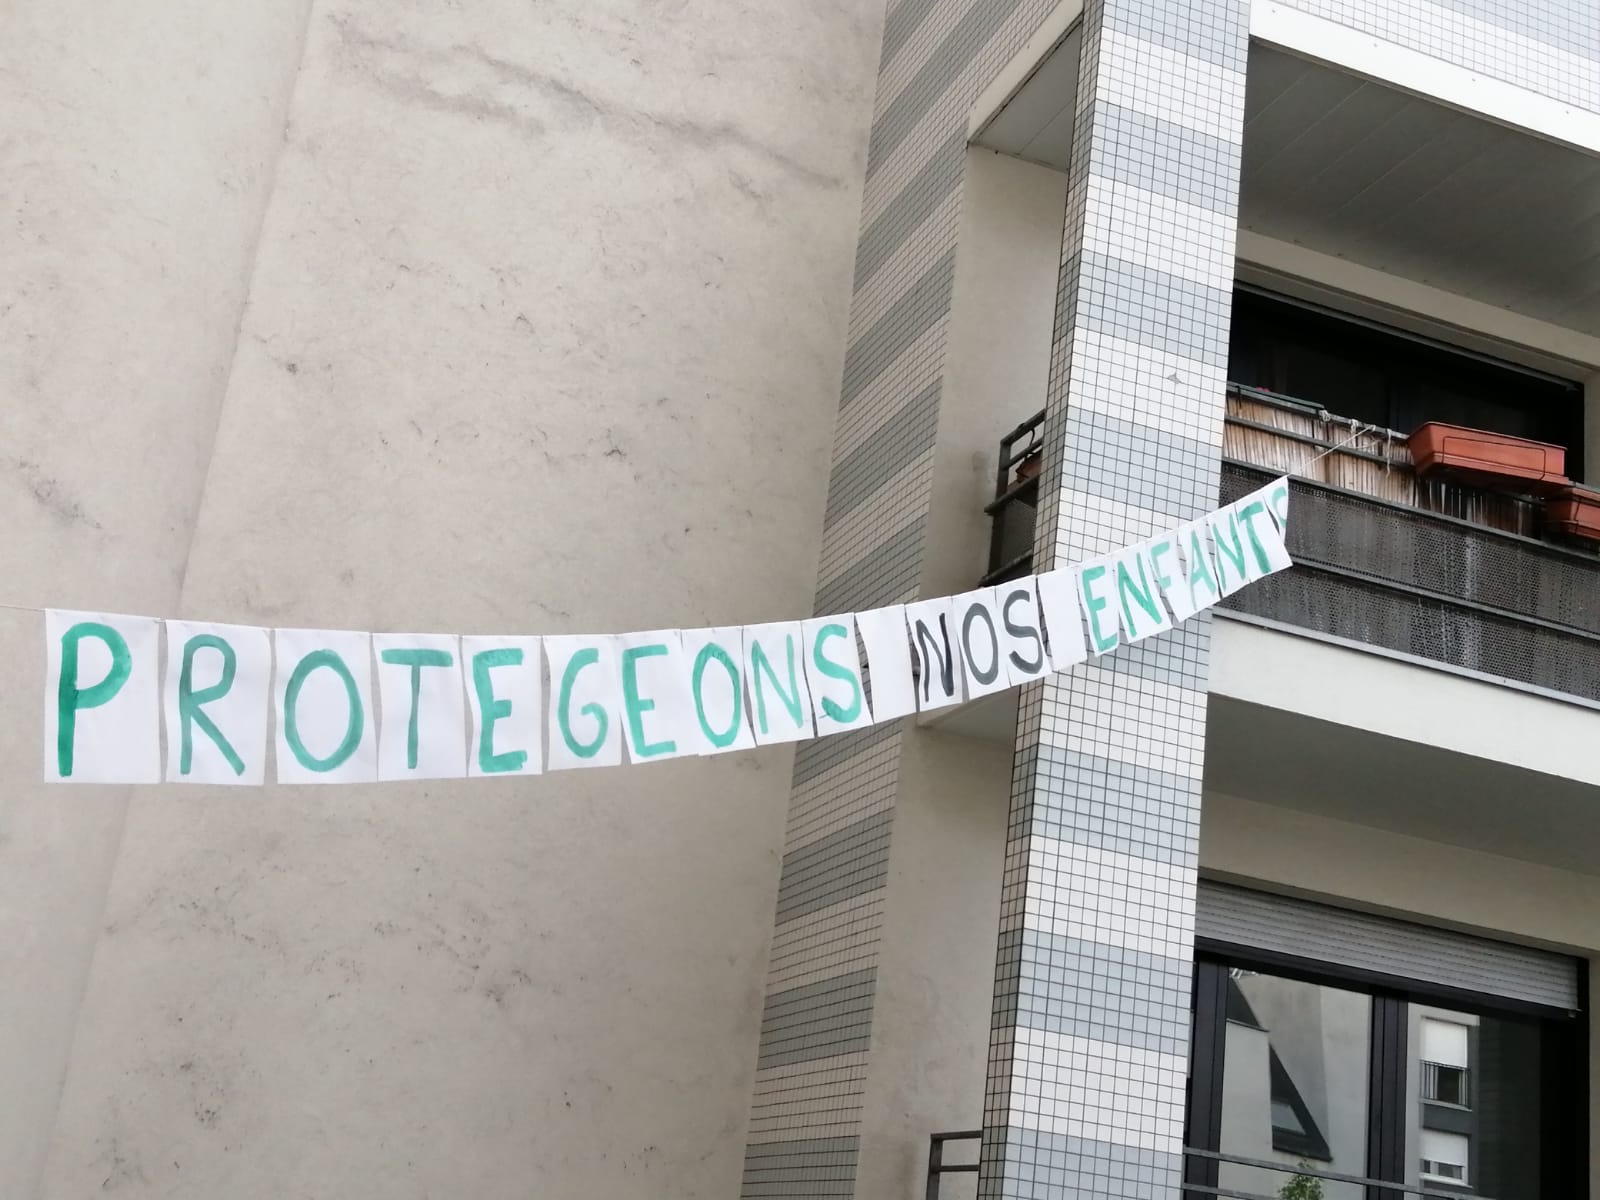 PROTEGEONS NOS ENFANTS